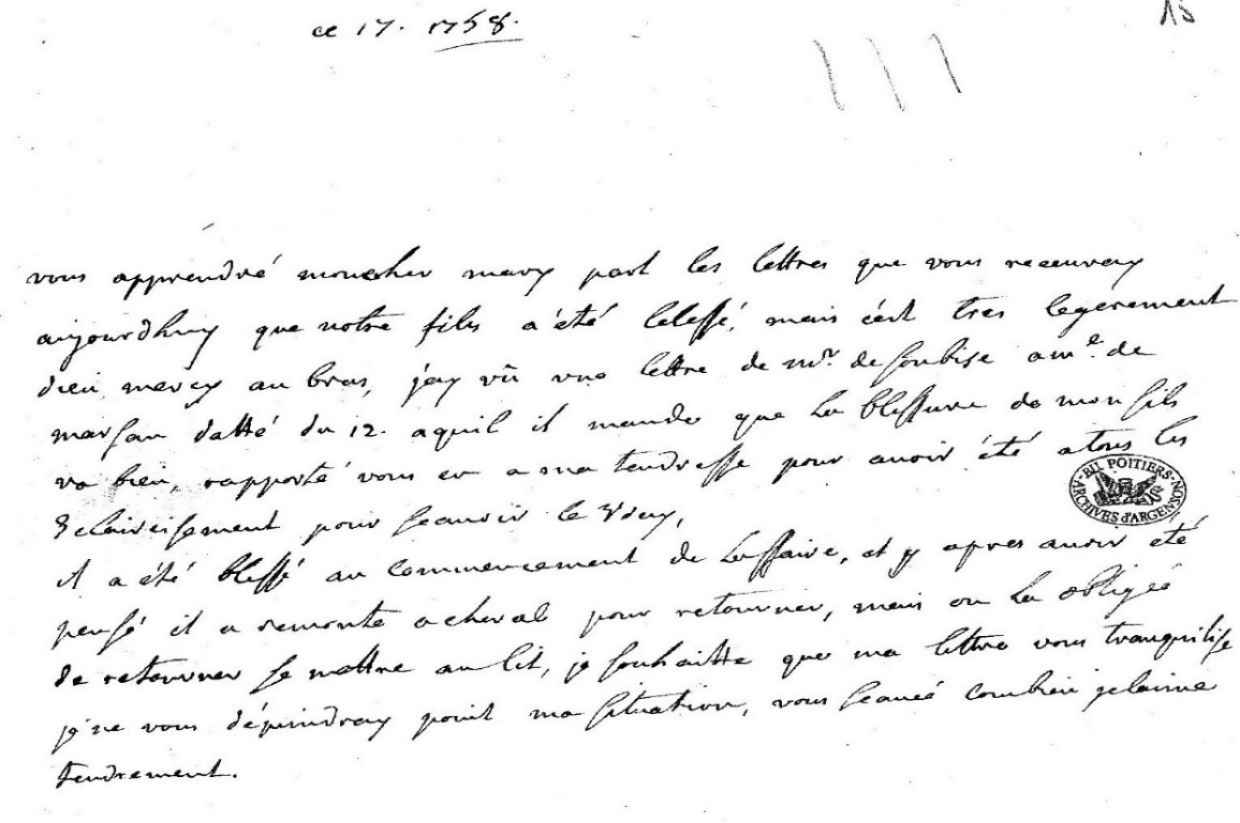 ce 17. 1758.
15
vous apprendré moncher mary part les lettres que vous receuvray
aujourdhuy que notre fils a été blessé, mais cést tres legerement
dieu mercy au bras, j'ay vû une lettre de mr. de soubise a me. de
marsan datté du 12. aquil il mande que la blessure de mon fils
va bien, rapporté vous en a ma tendresse pour avoir été a tous les
Eclaircisement pour scavoir le vray,
BU POITIERS
ARCHIVES d'ARGENSON
il a été blessé au commencement de laffaire, et y apres avoir été
pensé il a remonté a cheval pour retourner, mais on la obligéé
de retourner se mettre au lit, je souhaitte que ma lettre vous tranquilise
je ne vous dépindray point ma situation, vous scavéé combien jelaime
tendrement.